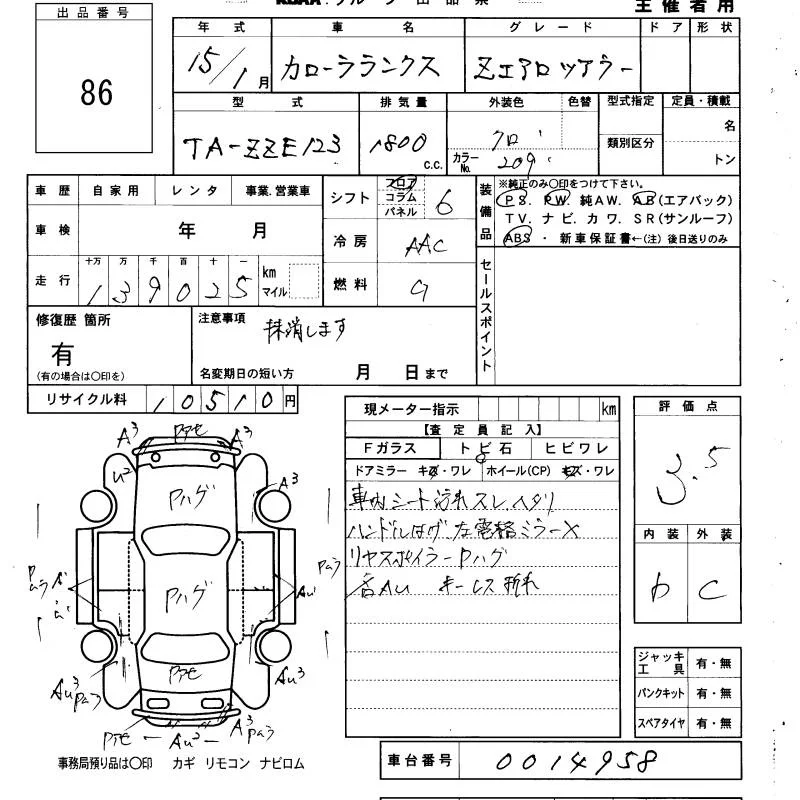 出品番号
86
主催者用
年式 車名 グレード ドア 形状
15/1月 カローラランクス Zエアロツアラー
型式 排気量 外装色 色替 型式指定 定員・積載
TA-ZZE123 1800 c.c. クロ カラーNo. 209 類別区分 名 トン
車歴 自家用 レンタ 事業.営業車
シフト フロア コラム パネル 6
装備品 ※純正のみ〇印をつけて下さい。
PS. PW. 純AW. AB(エアバック)
TV. ナビ. カワ. SR(サンルーフ)
ABS ・ 新車保証書←(注) 後日送りのみ
車検 年 月
冷房 AAC
走行 十万 万 千 百 十 一
139025 km マイル
燃料 G
セールスポイント
修復歴 箇所
有
(有の場合は〇印を)
注意事項 抹消します
名変期日の短い方 月 日まで
リサイクル料 10510円
現メーター指示 km
【査定員記入】
Fガラス トビ石 ヒビワレ
ドアミラー キズ・ワレ ホイール(CP) キズ・ワレ
車内シート汚れスレ ヘタリ
ハンドルはげ 左電格ミラーX
リヤスポイラーPハゲ
AU キーレス折れ
評価点
3.5
内装 外装
D C
A3 A3
U2 Pハゲ A3
Pハゲ
AU1
AU3 AU3
A3
AU2
ジャッキ工具 有・無
パンクキット 有・無
スペアタイヤ 有・無
事務局預り品は〇印 カギ リモコン ナビロム
車台番号 0014958